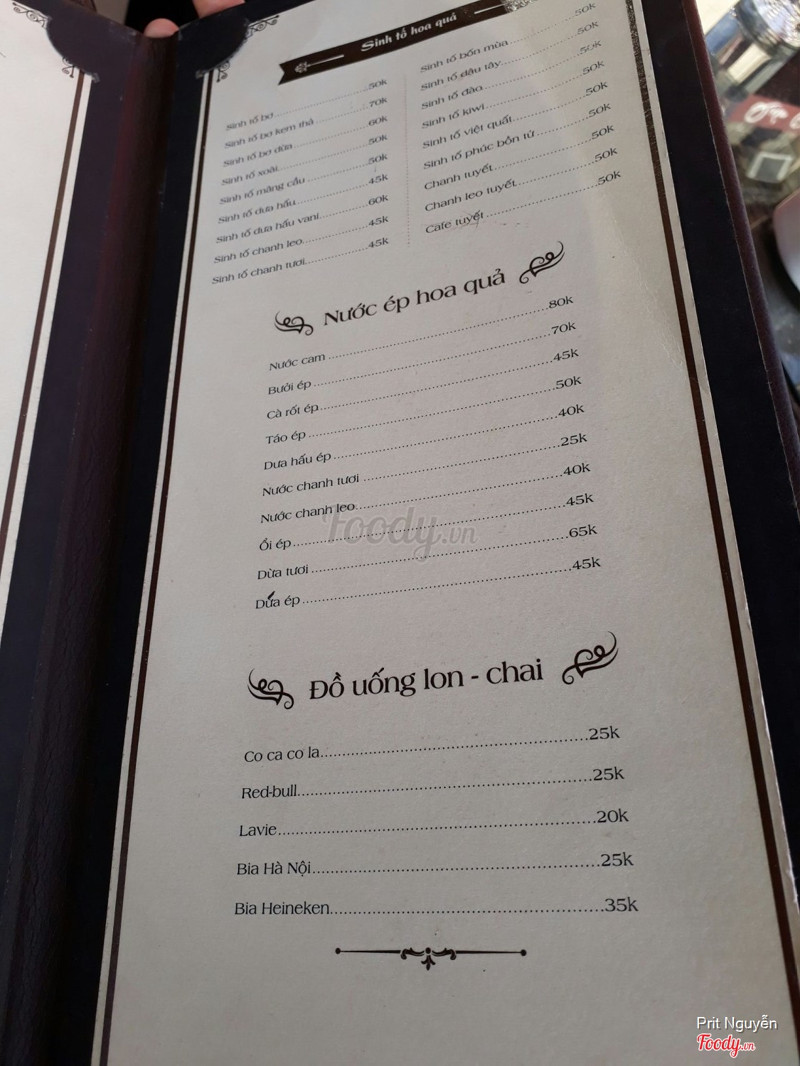 Sinh tố hoa quả
Sinh tố bơ 50k
Sinh tố bơ kem thả 70k
Sinh tố bơ dừa 60k
Sinh tố xoài 50k
Sinh tố mãng cầu 50k
Sinh tố dưa hấu 45k
Sinh tố dưa hấu vani 60k
Sinh tố chanh leo 45k
Sinh tố chanh tươi 45k
Sinh tố bốn mùa 50k
Sinh tố dâu tây 50k
Sinh tố đào 50k
Sinh tố kiwi 50k
Sinh tố việt quất 50k
Sinh tố phúc bồn tử 50k
Chanh tuyết 50k
Chanh leo tuyết 50k
Cafe tuyết 50k
Nước ép hoa quả
Nước cam 80k
Bưởi ép 70k
Cà rốt ép 45k
Táo ép 50k
Dưa hấu ép 40k
Nước chanh tươi 25k
Nước chanh leo 40k
Ổi ép 45k
Dừa tươi 65k
Dứa ép 45k
Foody.vn
Đồ uống lon - chai
Co ca co la 25k
Red-bull 25k
Lavie 20k
Bia Hà Nội 25k
Bia Heineken 35k
Prit Nguyễn
Foody.vn